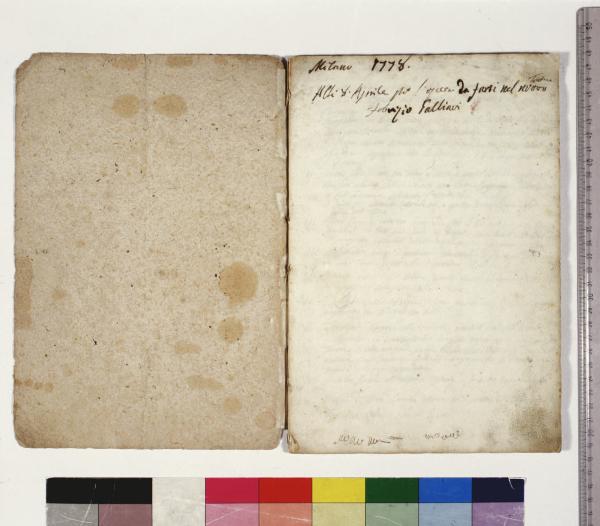 Milano 1778.
Alli 8. Aprile per l'opera da farsi nel nuovo
Teatro
Fabrizio Galliari